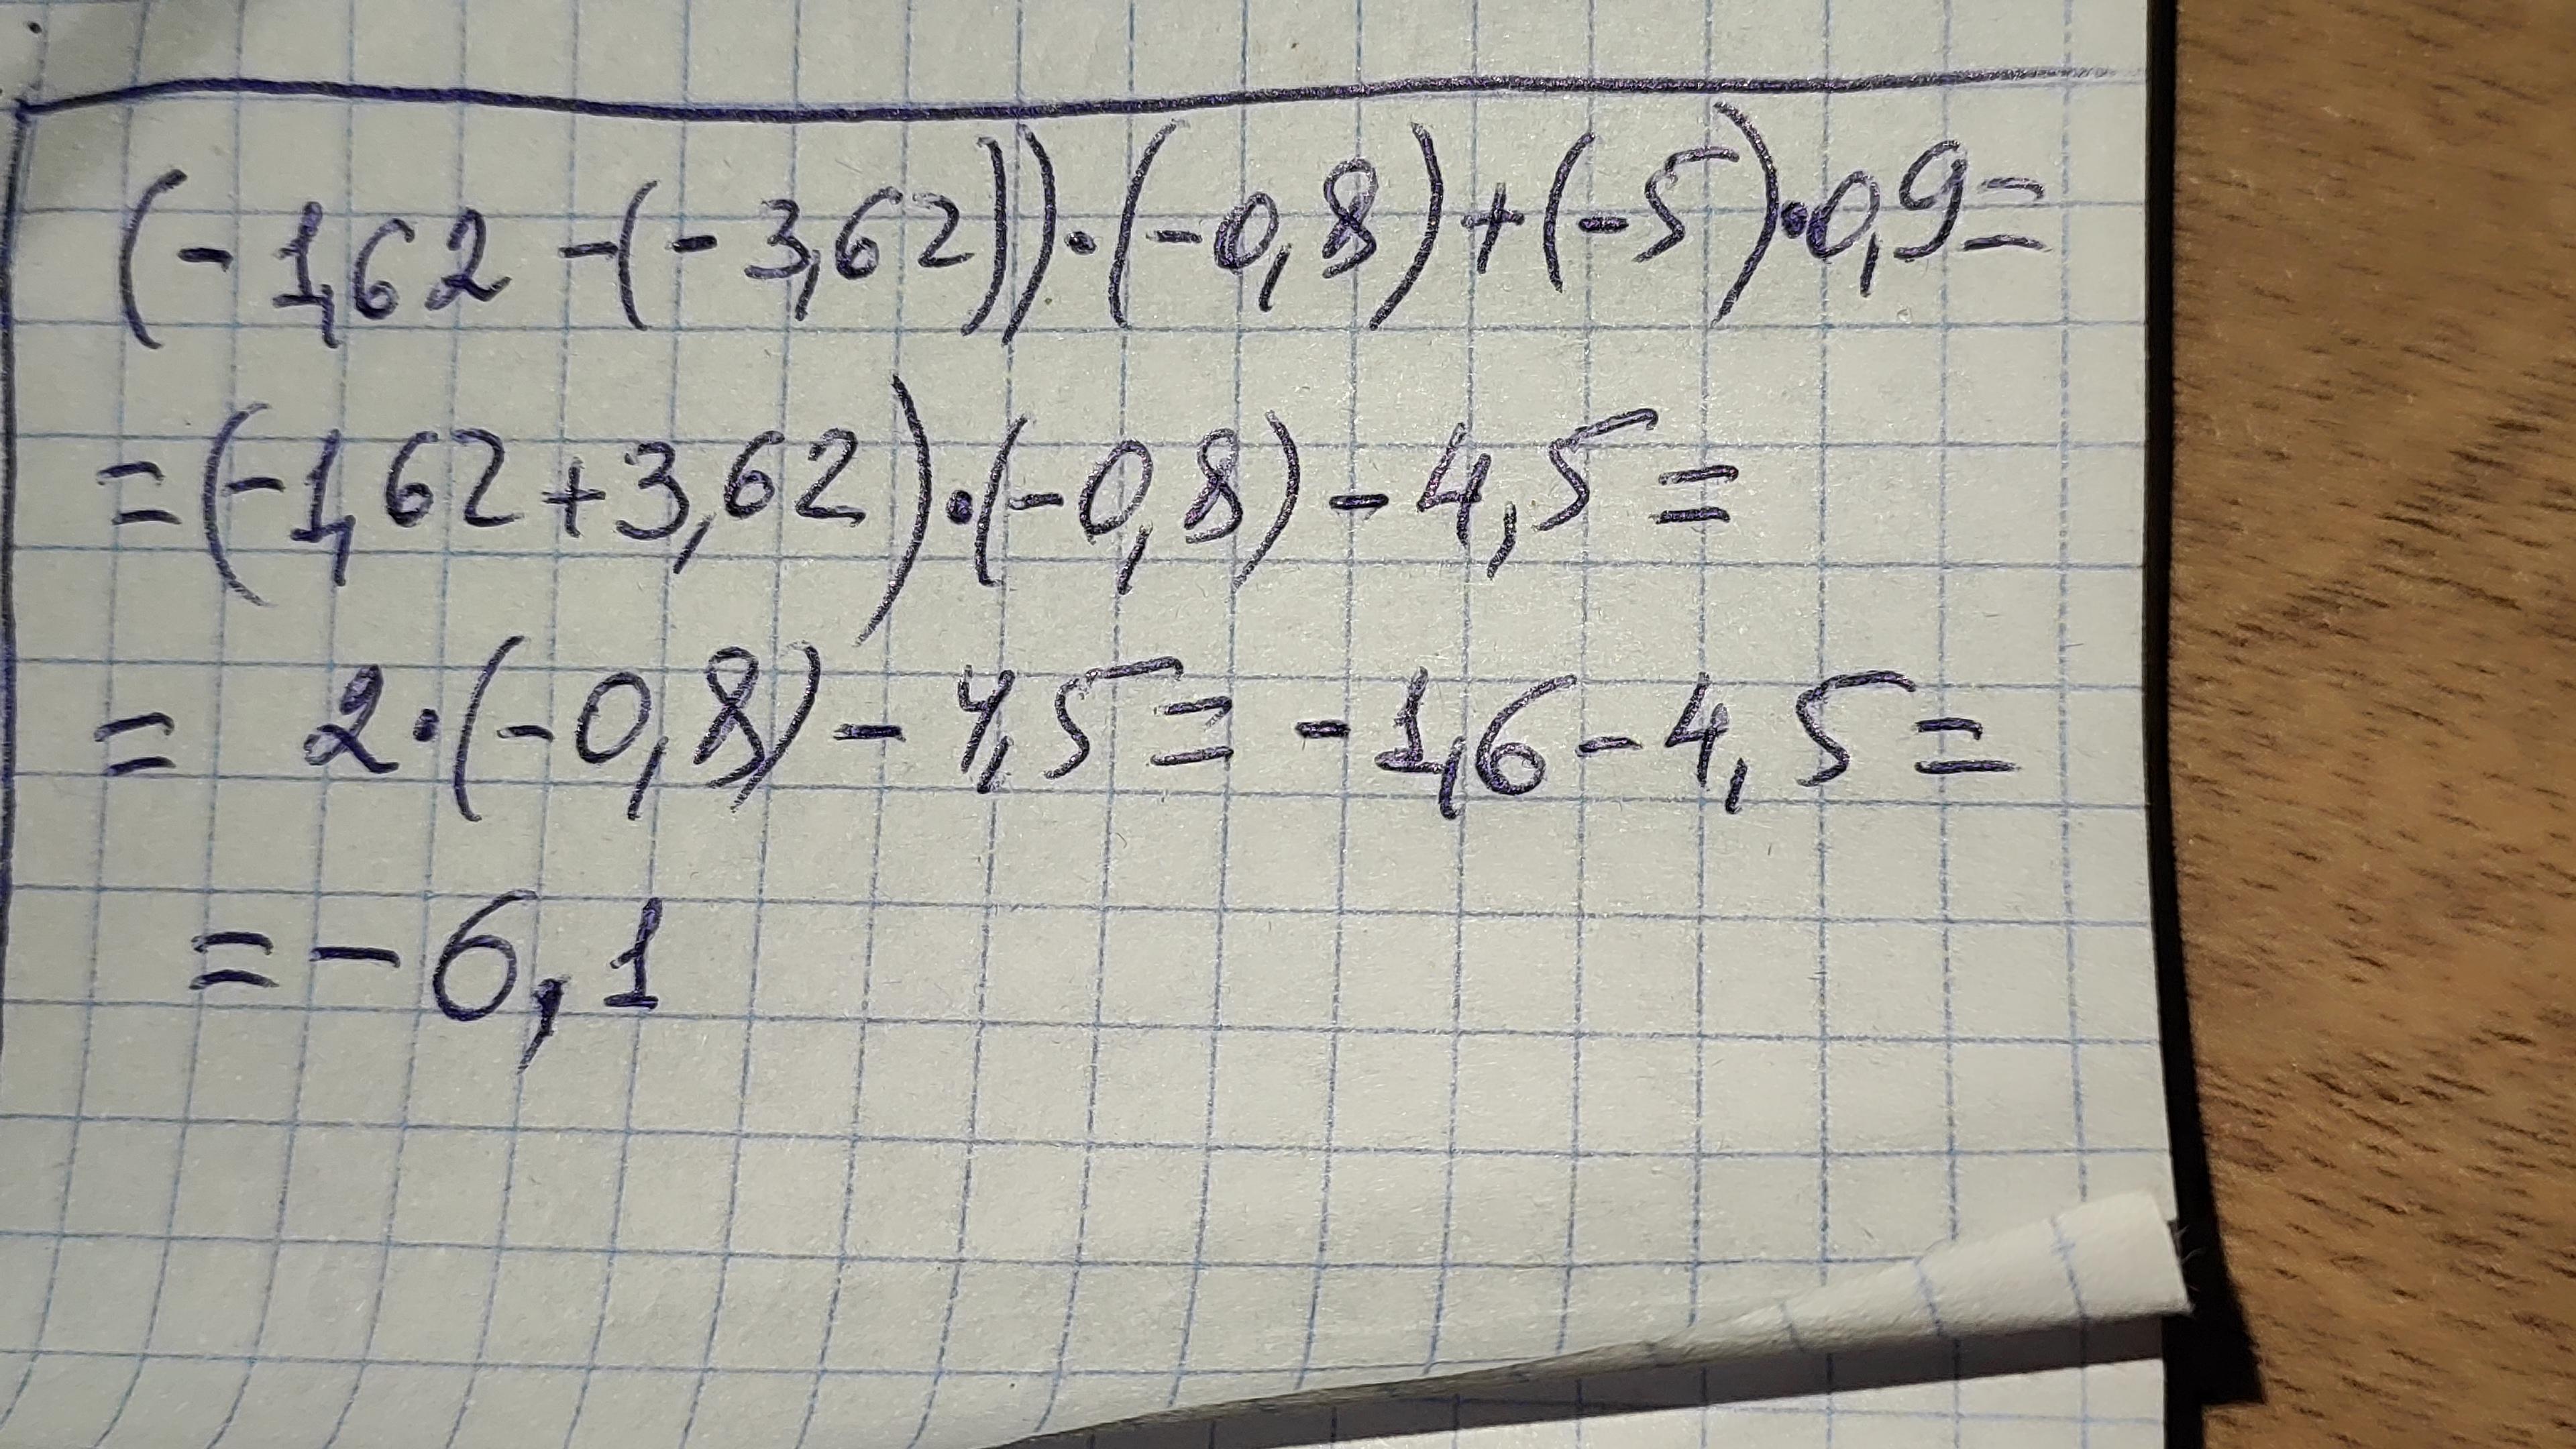 (-1,62 -(-3,62))·(-0,8)+(-5)·0,9=
=(-1,62+3,62)·(-0,8)-4,5=
= 2·(-0,8)-4,5= -1,6-4,5=
=-6,1